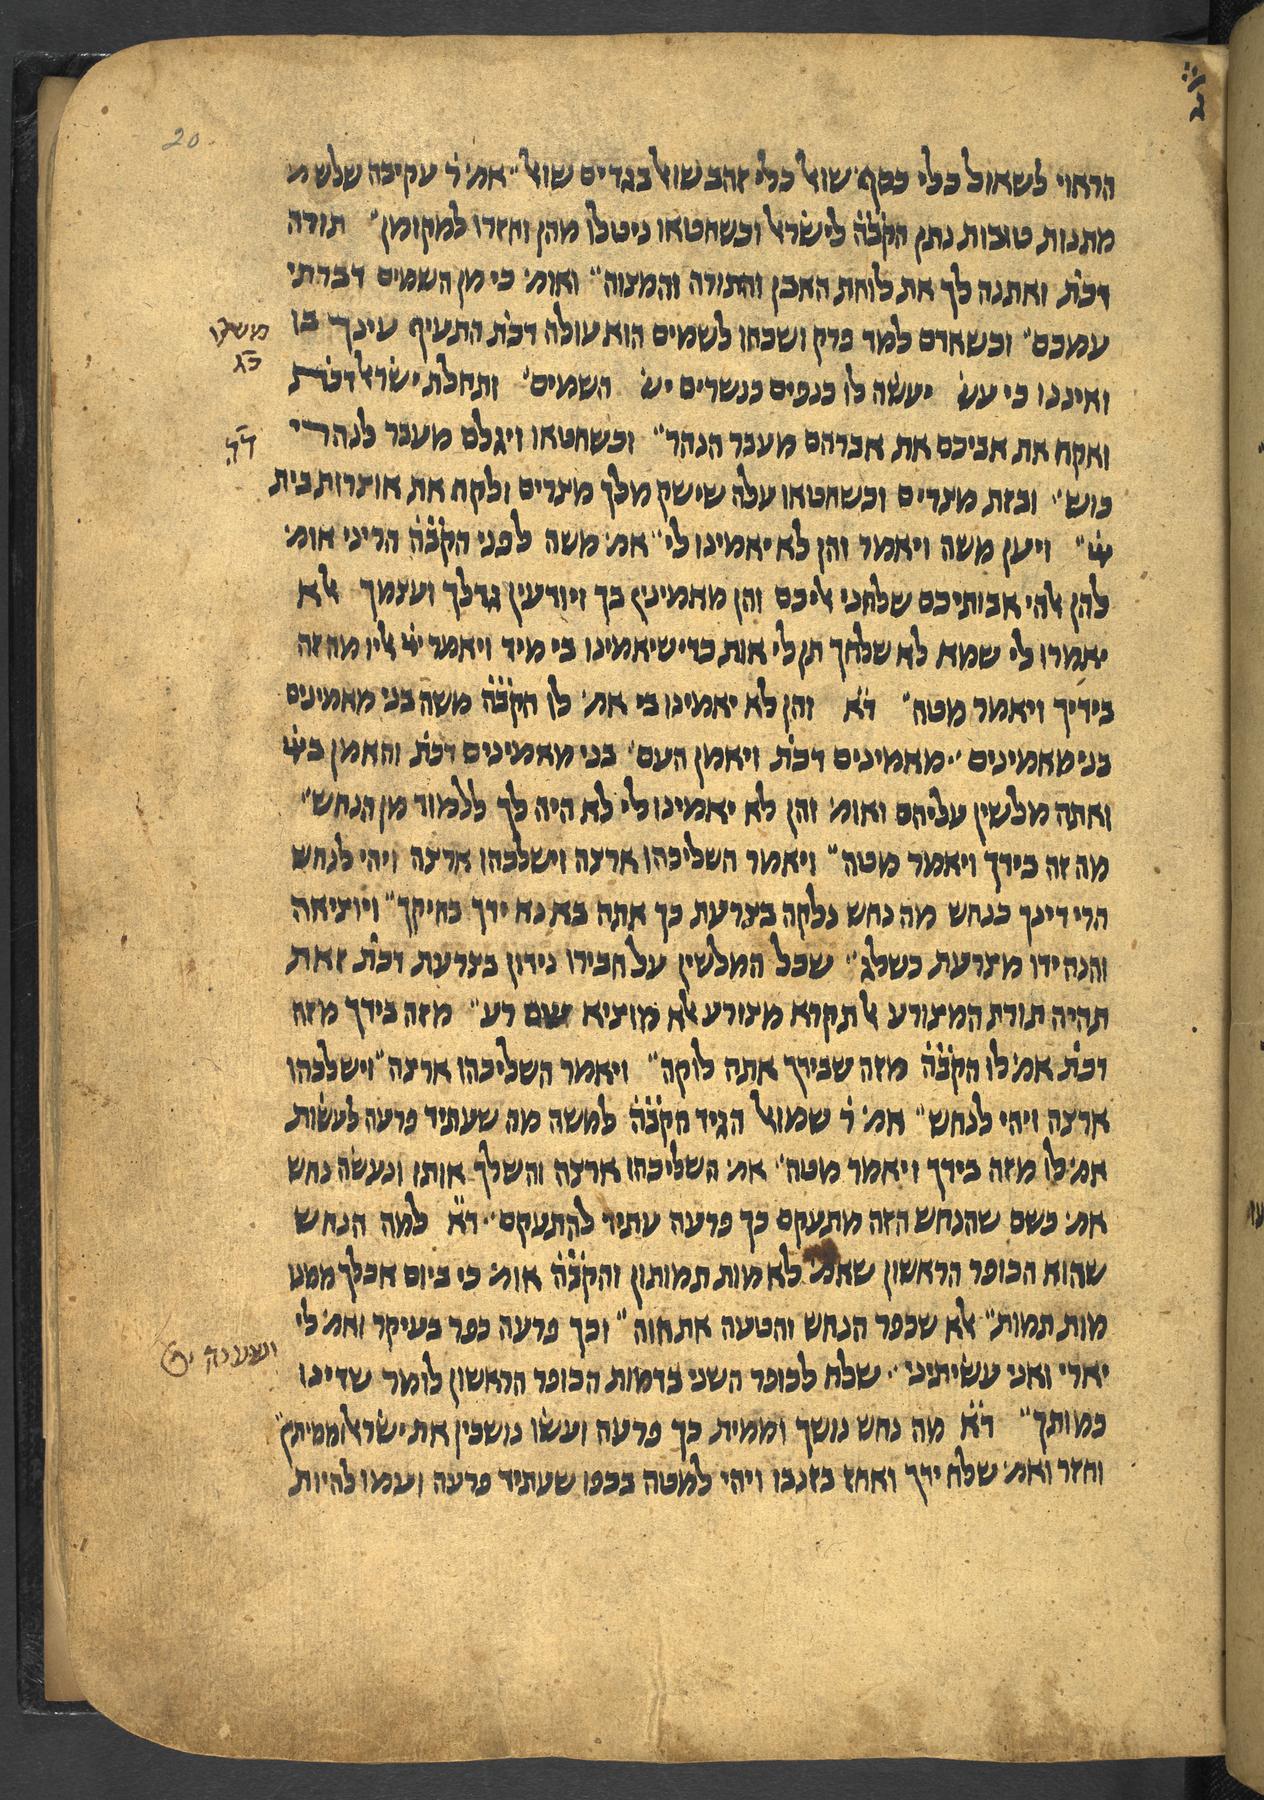 20
הראוי לשאול כלי כסף שואל כלי זהב שואל בגדים שואל״ אמ׳ ר׳ עקיבה שלש מ
מתנות טובות נתן הקבה לישראל וכשחטאו ניטלו מהן וחזרו למקומן״ תורה
דכת׳ ואתנה לך את לוחת האבן והתורה והמצוה״ ואומ׳ כי מן השמים דברתי
עמכם״ וכשאדם למד פרק ושכחו לשמים הוא עולה דכת׳ התעיף עינך בו
ואיננו כי עש׳ יעשה לו כנפים כנשרים יש׳ השמים׳ ונחלת ישראל דכת׳
ואקח את אביכם את אברהם מעבר הנהר״ וכשחטאו ויגלם מעבר לנהרי
כוש׳ ובזת מצרים וכשחטאו עלה שישק מלך מצרים ולקח את אוצרות בית
ייי״ ויען משה ויאמר והן לא יאמינו לי״ אמ׳ משה לפני הקבה הריני אומ׳
להן אלהי אבותיכם שלחני אליכם והן מאמינין בך ויודעין גדלך ועצמך אלא
יאמרו לי שמא לא שלחך תן לי אות כדי שיאמינו בי מיד ויאמר ייי אליו מה זה
בידיך ויאמר מטה״ דא והן לא יאמינו בי אמ׳ לו הקבה משה בני מאמינים
בני מאמינים׳ מאמינים דכת׳ ויאמן העם׳ בני מאמינים דכת׳ והאמן בייי
ואתה מלשין עליהם ואומ׳ והן לא יאמינו לי לא היה לך ללמוד מן הנחש׳
מה זה בידך ויאמר מטה״ ויאמר השליכהו ארצה וישלכהו ארצה ויהי לנחש
הרי דינך כנחש מה נחש נלקה בצרעת כך אתה בא נא ידך בחיקך״ ויוציאה
והנה ידו מצרעת כשלג״ שכל המלשין על חבירו נידון בצרעת דכת׳ זאת
תהיה תורת המצורע אל תקרא מצורע אלא מוציא שם רע״ מזה בידך מזה
דכת׳ אמ׳ לו הקבה מזה שבידך אתה לוקה״ ויאמר השליכהו ארצה״ וישלכהו
ארצה ויהי לנחש״ אמ׳ ר׳ שמואל הגיד הקבה למשה מה שעתיד פרעה לעשות
אמ׳ לו מזה בידך ויאמר מטה׳ אמ׳ השליכהו ארצה והשלך אותו ונעשה נחש
אמ׳ כשם שהנחש הזה מתעקם כך פרעה עתיד להתעקם׳ דא למה הנחש
שהוא הכופר הראשון שאמ׳ לא מות תמותון והקבה אומ׳ כי ביום אכלך ממנו
מות תמות״ אלא שכפר הנחש והטעה את חוה״ וכך פרעה כפר בעיקר ואמ׳ לי
יארי ואני עשיתיני׳ שלח לכופר השני בדמות הכופר הראשון לומר שדינו
כמותך״ דא מה נחש נושך וממית כך פרעה ועשו נושכין את ישראל וממיתין״
וחזר ואמ׳ שלח ידך ואחז בזנבו ויהי למטה בכפו שעתיד פרעה ועמו להיות
משלי
כג